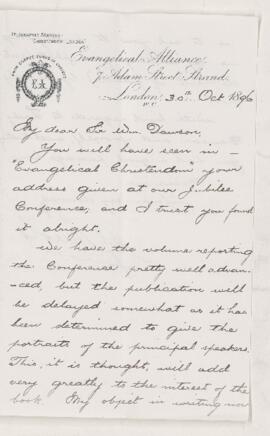 Telegraphic Address:
"Christendom, London."
E A
Evangelical Alliance,
7, Adam Street, Strand,
London, 30th Oct 1896
W.C.
My dear Sir Wm. Dawson,
You will have seen in
"Evangelical Christendom" your
address given at our Jubilee
Conference, and I trust you found
it alright.
We have the volume reporting
the Conference pretty well advan-
-ced, but the publication will
be delayed somewhat as it has
been determined to give the
portraits of the principal speakers.
This, it is thought, will add
very greatly to the interest of the
book. My object in writing now